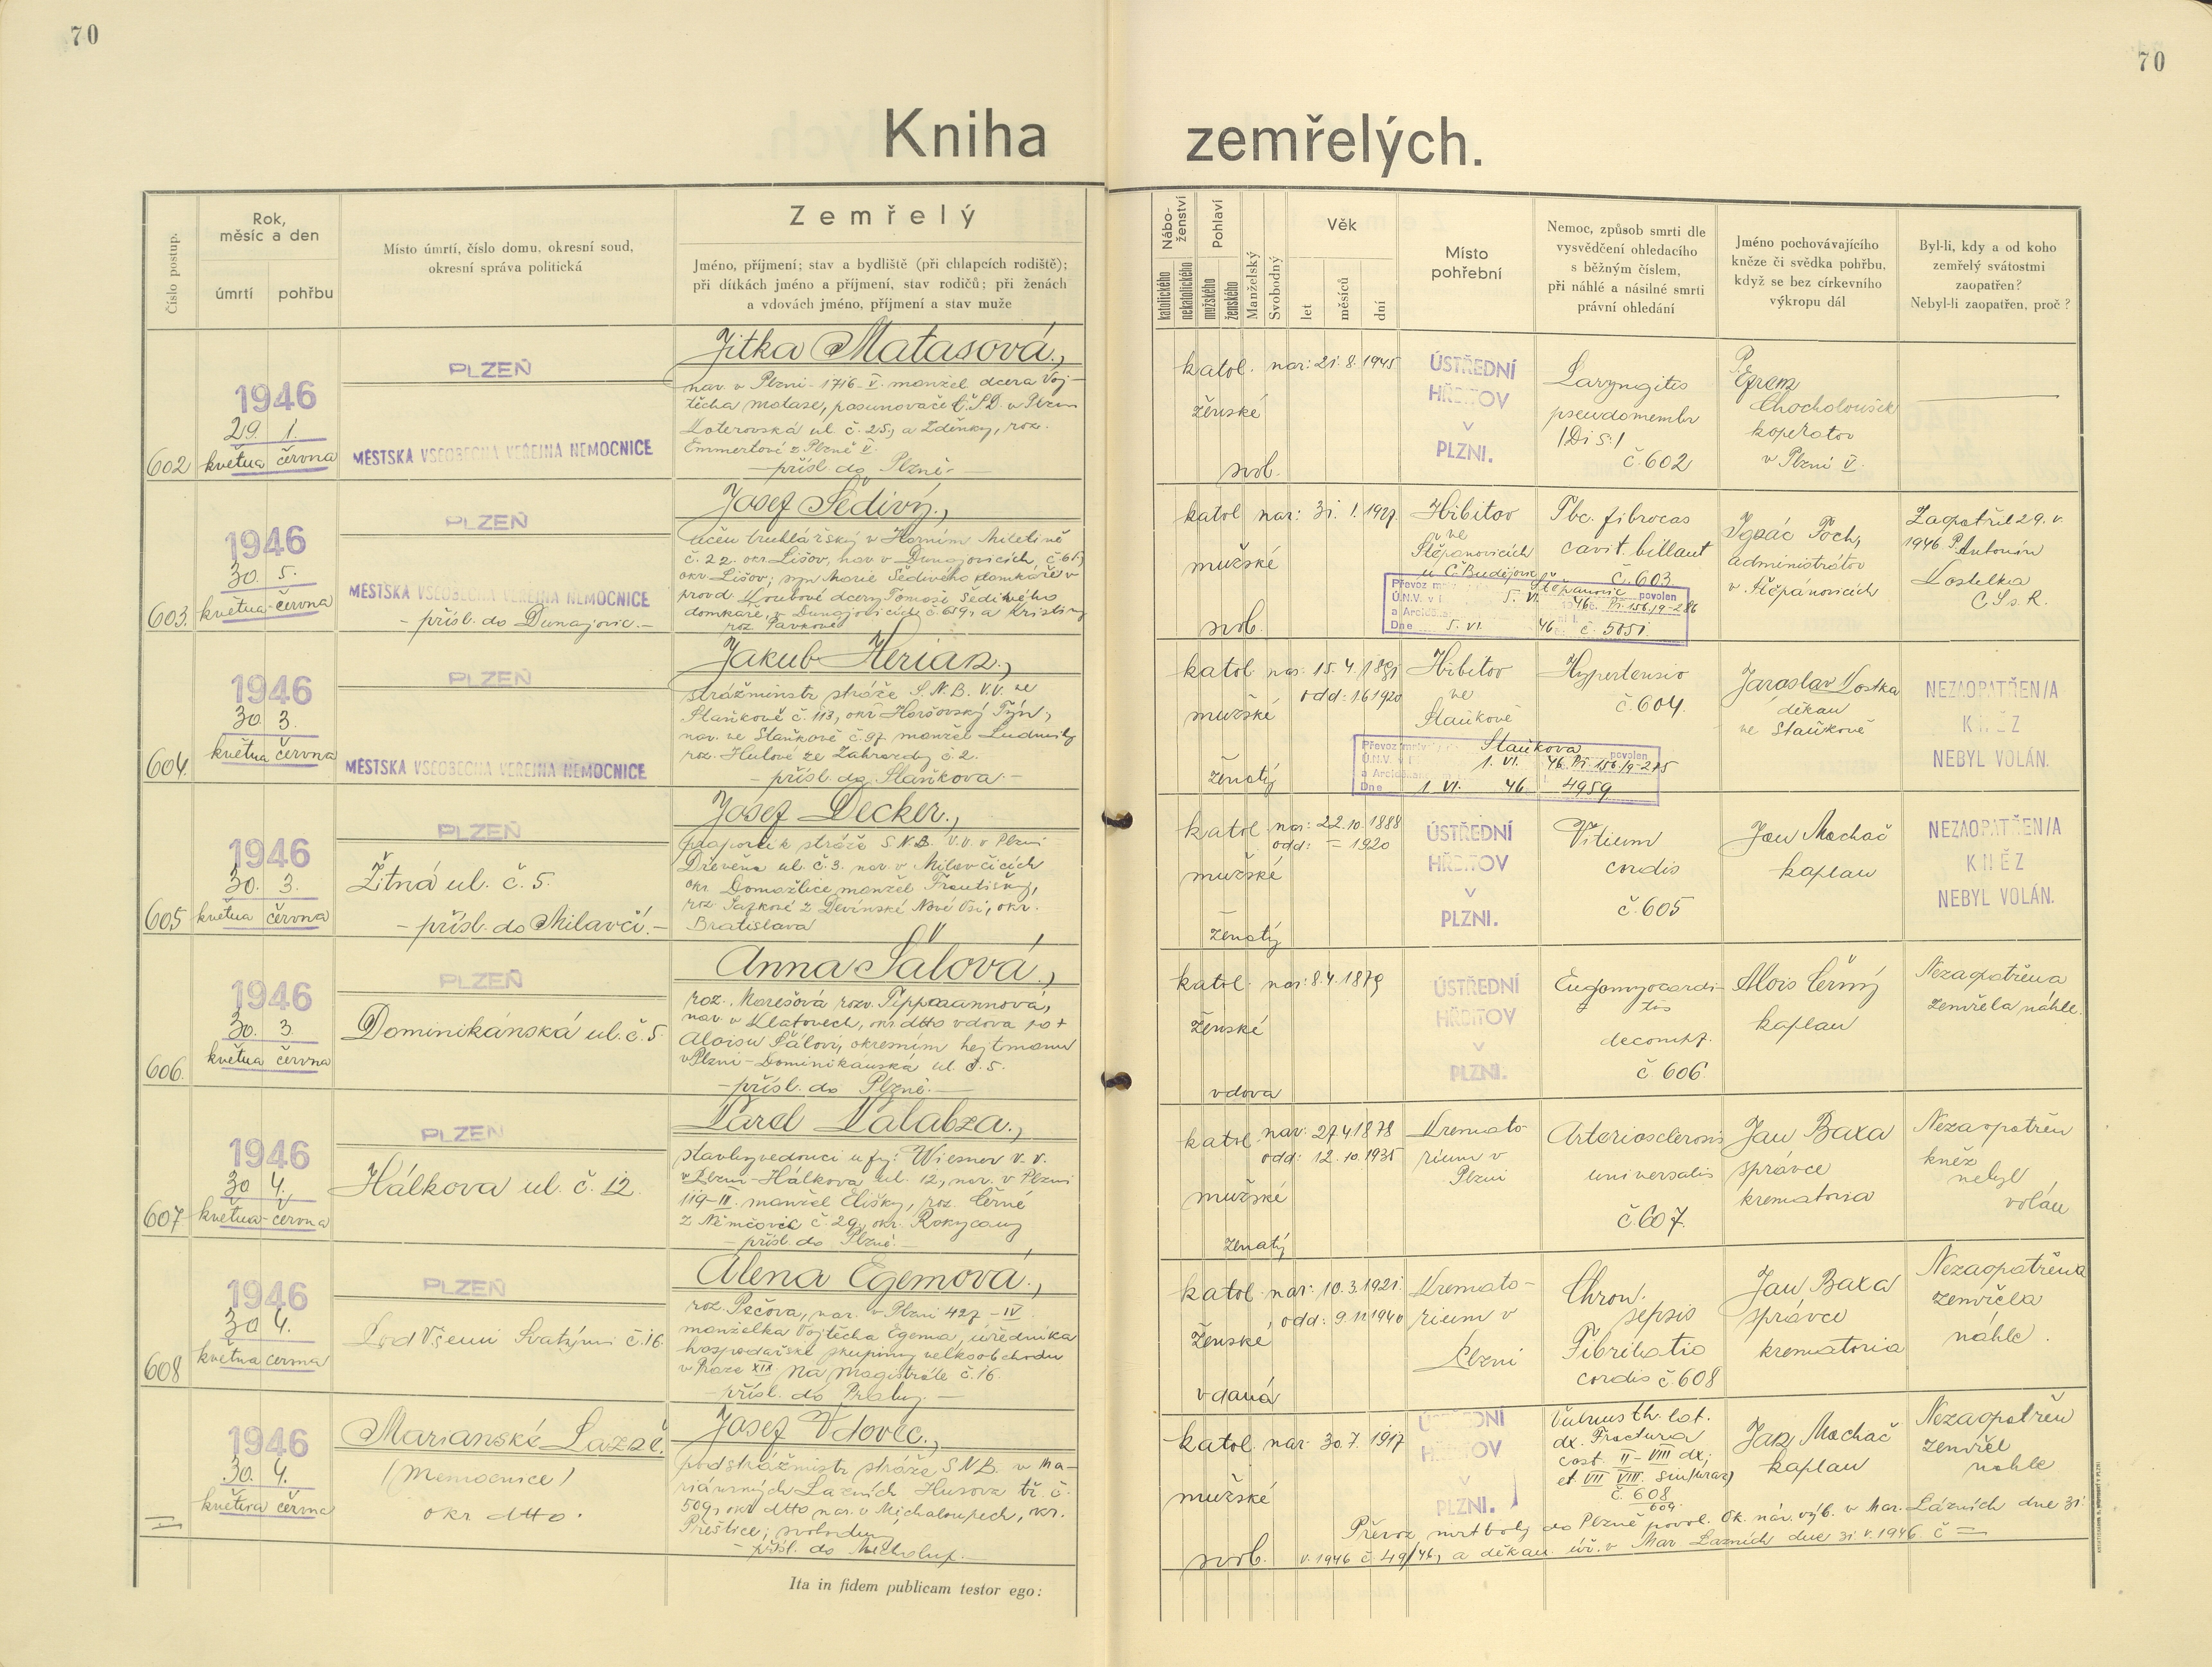 70
70
Kniha zemřelých.
Číslo postup.
Rok, měsíc a den
úmrtí
pohřbu
Místo úmrtí, číslo domu, okresní soud,
okresní správa politická
Zemřelý
Jméno, příjmení; stav a bydliště (při chlapcích rodiště);
při dítkách jméno a příjmení, stav rodičů; při ženách
a vdovách jméno, příjmení a stav muže
Nábo-ženství
katolického
nekatolického
Pohlaví
mužského
ženského
Manželský
Svobodný
Věk
let
měsíců
dní
Místo
pohřební
Nemoc, způsob smrti dle
vysvědčení ohledacího
s běžným číslem,
při náhlé a násilné smrti
právní ohledání
Jméno pochovávajícího
kněze či svědka pohřbu,
když se bez církevního
výkropu dál
Byl-li, kdy a od koho
zemřelý svátostmi
zaopatřen?
Nebyl-li zaopatřen, proč?
602
1946
29. 1.
května června
PLZEŇ
MĚSTSKÁ VŠEOBECNÁ VEŘEJNÁ NEMOCNICE
Jitka Matasová,
nar. v Plzni - 1716 - V. manžel. dcera Voj-
těcha Matase, posunovače Č.S.D. v Plzni
Koterovská ul. č. 25, a Zdeňky, roz.
Emmertové z Plzně V.
- přísl. do Plzně -
katol. nar: 21. 8. 1945
ženské
svob.
ÚSTŘEDNÍ
HŘBITOV
V
PLZNI.
Laryngitis
pseudomembr
/Di S./
č. 602
P. Efrem
Chocholoušek
koperátor
v Plzni V.
603.
1946
30. 5.
května - června
PLZEŇ
MĚSTSKÁ VŠEOBECNÁ VEŘEJNÁ NEMOCNICE
- přísl. do Dunajovic. -
Josef Šedivý,
učeň truhlářský v Horním Miletíně
č. 22. okr. Lišov, nar. v Dunajovicích, č. 61,
okr. Lišov; syn Marie Šedivého domkáře v
domkáře, v Dunajovicích č. 659, a Kristiny
roz. Pavkové
katol nar: 31. 1. 1927.
mužské
svob.
Hřbitov
ve
Štěpánovicích
u Č. Budějovic
Tbc. fibrocas
cavit. billaut
č. 603
Převoz Štěpánovic povolen
Ú.N.V. v 5. VI. 46 č. Př. 156/9-286
a Arcidě
Dne 5. VI. 46 č. 5051.
Ignác Poch,
administrátor
v Štěpánovicích
Zaopatřil 29. V.
1946 P. Antonín
Kostelka
C.Ss.R.
604.
1946
30. 3.
května června
PLZEŇ
MĚSTSKÁ VŠEOBECNÁ VEŘEJNÁ NEMOCNICE
Jakub Herian,
strážmistr stráže S.N.B. V.V. ve
Staňkově č. 113, okr. Horšovský Týn,
nar. ve Staňkově č. 97. manžel Ludmily
roz. Hulové ze Zahrazdy č. 2.
- přísl. do Staňkova -
katol nar: 15. 4. 1891
odd: 1.6 1920
mužské
ženatý
Hřbitov
ve
Staňkově
Hypertensio
č. 604.
Převoz Staňkova povolen
Ú.N.V. 1. VI. 46. Př. 156/9-275
a Arcidě
Dne 1. VI. 46 4959
Jaroslav Kostka
děkan
ve Staňkově
NEZAOPATŘEN/A
KNĚZ
NEBYL VOLÁN.
605
1946
30. 3.
května června
PLZEŇ
Žitná ul. č. 5.
- přísl. do Milavčí. -
Josef Decker,
praporčík stráže S.N.B. V.V. v Plzni
Dřevěná ul. č. 3. nar. v Milavčicích
okr. Domažlice manžel Františky,
roz. Sajkové z Devínské Nové Vsi, okr.
Bratislava
katol nar: 22. 10. 1888
odd: = 1920
mužské
ženatý
ÚSTŘEDNÍ
HŘBITOV
V
PLZNI.
Vitium
cordis
č. 605
Jan Machač
kaplan
NEZAOPATŘEN/A
KNĚZ
NEBYL VOLÁN.
606.
1946
30. 3.
května června
PLZEŇ
Dominikánská ul. č. 5.
Anna Šálová,
roz. Marešová rozv. Tippmannová,
nar. v Klatovech, okr. dtto vdova po +
Aloisu Šálovi, okresním hejtmanu
v Plzni - Dominikánská ul. č. 5.
- přísl. do Plzně. -
katol. nar: 8. 4. 1879
ženské
vdova
ÚSTŘEDNÍ
HŘBITOV
V
PLZNI.
Endomyocardi-
tis
decomp.
č 606.
Alois Černý
kaplan
Nezaopatřena
zemřela náhle.
607
1946
30 4.
května - června
PLZEŇ
Hálkova ul. č. 12.
Karel Kalabza,
stavbyvedoucí u fy: Wiesner v. v.
v Plzni - Hálkova ul. 12, nar. v Plzni
119 - II. manžel Elišky, roz. Černé
z Němčovic č. 29, okr. Rokycany
- přísl. do Plzně. -
katol nar: 27. 4. 1878
odd: 12. 10. 1935
mužské
ženatý
Kremato
rium v
Plzni
Arteriosclerosis
universalis
č. 607.
Jan Baxa
správce
krematoria
Nezaopatřen
kněz
nebyl
volán
608
1946
30 4.
května června
PLZEŇ
Pod Všemi Svatými č. 16.
Alena Egemová,
roz. Pečova, nar. v Plzni 427 - IV.
manželka Vojtěcha Egema, úředníka
hospodářské skupiny velkoobchodu
v Praze XIX Na Magistrále č. 16.
- přísl. do Prahy. -
katol. nar: 10. 3. 1921.
odd: 9. 11. 1940
ženské
vdaná
Kremato-
rium v
Plzni
Chron.
sepsis
Fibrilatio
cordis č. 608
Jan Baxa
správce
krematoria
Nezaopatřena
zemřela
náhle.
1946
30. 4.
května června
Marianské Lázně.
(Nemocnice)
okr dtto.
Josef Vdovec,
podstrážmistr stráže S.N.B. v Ma-
riánských Lázních Husova tř. č.
509, okr. dtto nar. v Michaloupech, okr.
Přeštice, svobodný
- přísl. do Michalup. -
katol nar 30. 7. 1917
mužské
svob.
ÚSTŘEDNÍ
HŘBITOV
V
PLZNI.
Vulnus th. lat.
dx. Fractura
cost. II - VIII dx,
et VII VIII. sin/úraz)
č. 608
609.
Jan Machač
kaplan
Nezaopatřen
zemřel
náhle
Převoz mrtvoly do Plzně povol. Ok. nár. výb. v Mar. Lázních dne 31.
V. 1946 č. 49/46, a děkan. úř. v Mar. Lázních dne 31. V. 1946. č =
Ita in fidem publicam testor ego: